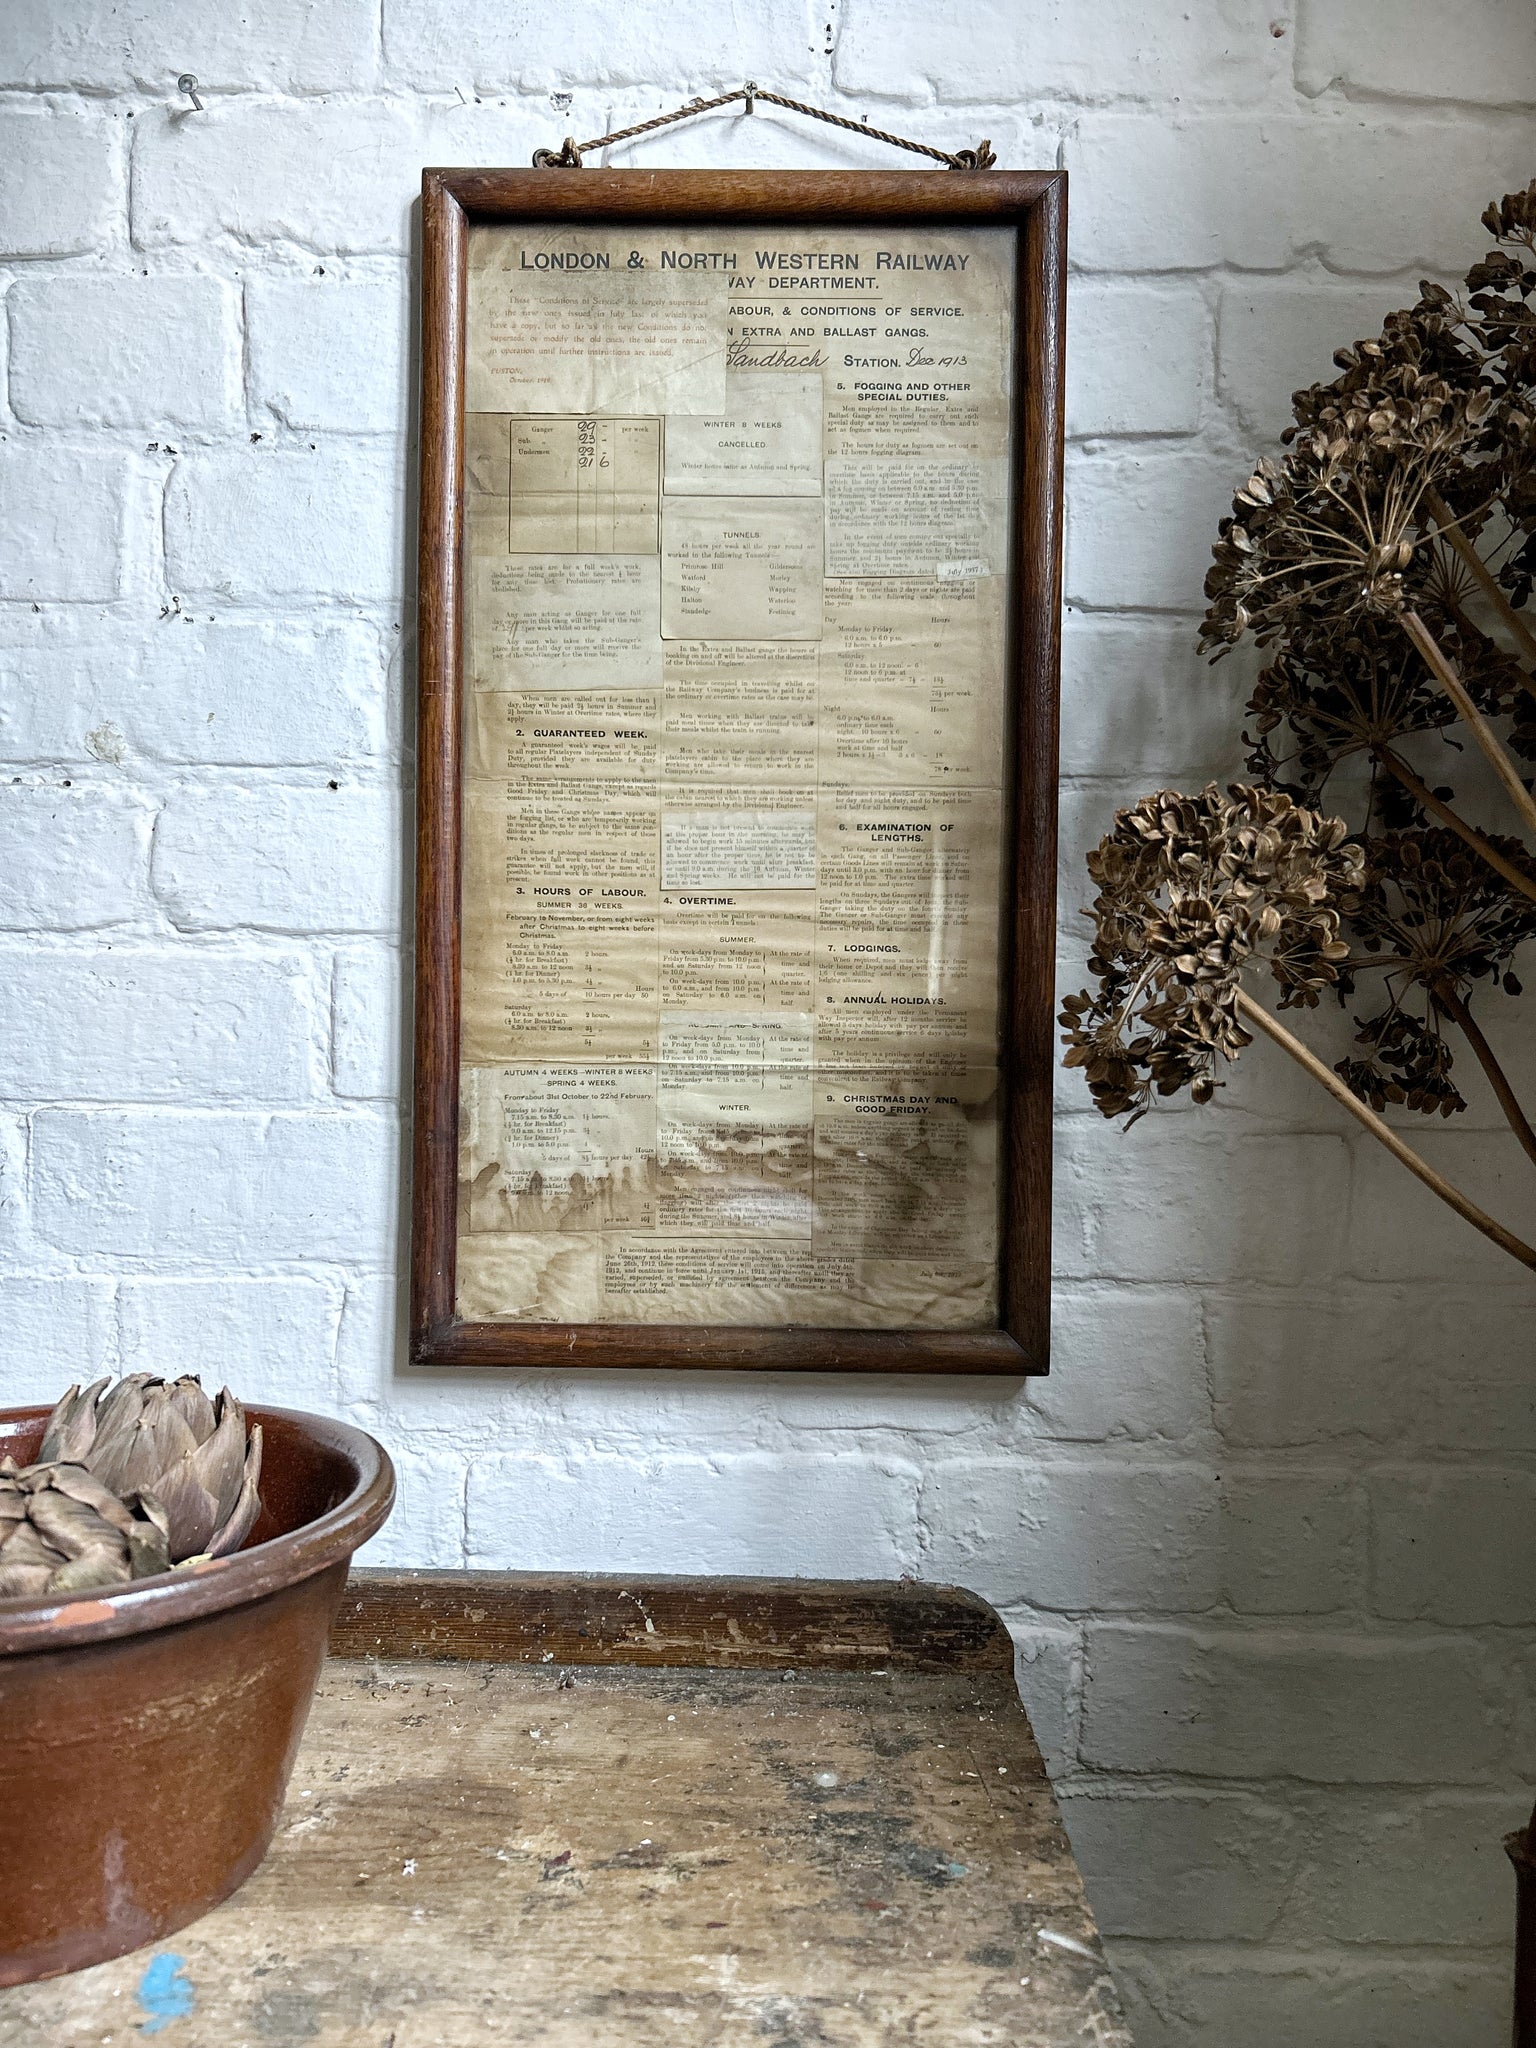 LONDON & NORTH WESTERN RAILWAY
WAY DEPARTMENT.
ABOUR, & CONDITIONS OF SERVICE.
N EXTRA AND BALLAST GANGS.
Sandbach STATION. Dec 1913
These "Conditions of Service" are largely superseded
by the new ones issued in July last of which you
have a copy, but so far as the new Conditions do not
supersede or modify the old ones, the old ones remain
in operation until further instructions are issued.
EUSTON,
October,
Ganger 29 - per week
Sub. " 23 -
Undermen 22 -
21 6
These rates are for a full week's work,
deductions being made to the nearest ¼ hour
for any time lost. Probationary rates are
abolished.
Any man acting as Ganger for one full
day or more in this Gang will be paid at the rate
of per week whilst so acting.
Any man who takes the Sub-Ganger's
place for one full day or more will receive the
pay of the Sub-Ganger for the time being.
When men are called out for less than
day, they will be paid 2½ hours in Summer and
2½ hours in Winter at Overtime rates, where they
apply.
2. GUARANTEED WEEK.
A guaranteed week's wages will be paid
to all regular Platelayers independent of Sunday
Duty, provided they are available for duty
throughout the week.
The same arrangements to apply to the men
in the Extra and Ballast Gangs, except as regards
Good Friday and Christmas Day, which will
continue to be treated as Sundays.
Men in these Gangs whose names appear on
the fogging list, or who are temporarily working
in regular gangs, to be subject to the same con-
ditions as the regular men in respect of those
two days.
In times of prolonged slackness of trade or
strikes when full work cannot be found, this
guarantee will not apply, but the men will, if
possible, be found work in other positions as at
present.
3. HOURS OF LABOUR.
SUMMER 36 WEEKS.
February to November, or from eight weeks
after Christmas to eight weeks before
Christmas.
Monday to Friday
6.0 a.m. to 8.0 a.m. 2 hours.
(½ hr. for Breakfast)
8.30 a.m. to 12 noon 3½ "
(1 hr. for Dinner)
1.0 p.m. to 5.30 p.m. 4½ "
Hours
5 days of 10 hours per day 50
Saturday
6.0 a.m. to 8.0 a.m. 2 hours.
(½ hr. for Breakfast)
8.30 a.m. to 12 noon 3½ "
5½ 5½
per week 55½
AUTUMN 4 WEEKS—WINTER 8 WEEKS
SPRING 4 WEEKS.
From about 31st October to 22nd February.
Monday to Friday
7.15 a.m. to 8.30 a.m. 1¼ hours.
(½ hr. for Breakfast)
9.0 a.m. to 12.15 p.m. 3¼ "
(¾ hr. for Dinner)
1.0 p.m. to 5.0 p.m. 4 "
Hours
5 days of 8½ hours per day 42½
Saturday
7.15 a.m. to 8.30 a.m.
(½ hr. for Breakfast)
9.0 a.m. to 12 noon
per week
WINTER 8 WEEKS
CANCELLED.
Winter hours same as Autumn and Spring.
TUNNELS
48 hours per week all the year round are
worked in the following Tunnels:—
Primrose Hill Gildersome
Watford Morley
Kilsby Wapping
Halton Waterloo
Standedge Festiniog
In the Extra and Ballast gangs the hours of
booking on and off will be altered at the discretion
of the Divisional Engineer.
The time occupied in travelling whilst on
the Railway Company's business is paid for at
the ordinary or overtime rates as the case may be.
Men working with Ballast trains will be
paid meal times when they are directed to take
their meals whilst the train is running.
Men who take their meals in the nearest
platelayers cabin to the place where they are
working are allowed to return to work in the
Company's time.
It is required that men shall book on at
the cabin nearest to which they are working unless
otherwise arranged by the Divisional Engineer.
If a man is not present to commence work
at this proper hour in the morning, he may be
allowed to begin work 15 minutes afterwards, but
if he does not present himself within a quarter of
an hour after the proper time, he is not to be
allowed to commence work until after breakfast,
or until 9.0 a.m. during the 16 Autumn, Winter
and Spring weeks. He will not be paid for the
time so lost.
4. OVERTIME.
Overtime will be paid for on the following
basis except in certain Tunnels:
SUMMER.
On week-days from Monday to
Friday from 5.30 p.m. to 10.0 p.m.
and on Saturday from 12 noon
to 10.0 p.m.
At the rate of
time and
quarter.
On week-days from 10.0 p.m.
to 6.0 a.m., and from 10.0 p.m.
on Saturday to 6.0 a.m. on
Monday.
At the rate of
time and
half.
AUTUMN AND SPRING.
On week-days from Monday
to Friday from 5.0 p.m. to 10.0
p.m., and on Saturday from
12 noon to 10.0 p.m.
At the rate of
time and
quarter.
On week-days from 10.0 p.m.
to 7.15 a.m., and from 10.0 p.m.
on Saturday to 7.15 a.m. on
Monday.
At the rate of
time and
half.
WINTER.
On week-days from Monday
to Friday from
10.0 p.m. and
12 noon to 10.0 p.m.
At the rate of
time and
quarter.
On week-days from 10.0 p.m.
Monday
At the rate of
time and
half.
ordinary rates for the first
during the Summer, and 8½ hours in Winter, after
which they will be paid time and half.
5. FOGGING AND OTHER
SPECIAL DUTIES.
Men employed in the Regular, Extra and
Ballast Gangs are required to carry out such
special duty as may be assigned to them and to
act as fogmen when required.
The hours for duty as fogmen are set out on
the 12 hours fogging diagram.
This will be paid for on the ordinary or
overtime basis applicable to the hours during
which the duty is carried out, and in the case
of a fog coming on between 6.0 a.m. and 5.30 p.m.
in Summer, or between 7.15 a.m. and 5.0 p.m.
in Autumn, Winter or Spring, no deduction of
pay will be made on account of resting time
during ordinary working hours of the 1st day
in accordance with the 12 hours diagram.
In the event of men coming out specially to
take up fogging duty outside ordinary working
hours the minimum payment to be 2½ hours in
Summer, and 2½ hours in Autumn, Winter and
Spring at Overtime rates.
See also Fogging Diagram dated July
Men engaged on continuous fogging or
watching for more than 2 days or nights are paid
according to the following scale, throughout
the year:
Day Hours
Monday to Friday
6.0 a.m. to 6.0 p.m.
12 hours x 5 = 60
Saturday
6.0 a.m. to 12 noon = 6
12 noon to 6 p.m. at
time and quarter = 7½ = 13½
73½ per week.
Night Hours
6.0 p.m. to 6.0 a.m.
ordinary time each
night. 10 hours x 6 = 60
Overtime after 10 hours
work at time and half
2 hours x 1½ = 3 3 x 6 = 18
78 per week.
Sundays.
Relief men to be provided on Sundays both
for day and night duty, and to be paid time
and half for all hours engaged.
6. EXAMINATION OF
LENGTHS.
The Ganger and Sub-Ganger alternately
in each Gang, on all Passenger Lines, and on
certain Goods Lines will remain at work on Satur-
days until 3.0 p.m. with an hour for dinner from
12 noon to 1.0 p.m. The extra time worked will
be paid for at time and quarter.
On Sundays, the Gangers will inspect their
lengths on three Sundays out of four, the Sub-
Ganger taking the duty on the fourth Sunday.
The Ganger or Sub-Ganger must execute any
necessary repairs, the time occupied in these
duties will be paid for at time and half.
7. LODGINGS.
When required, men must lodge away from
their home or Depot and they will then receive
1/6 (one shilling and six pence) per night
lodging allowance.
8. ANNUAL HOLIDAYS.
All men employed under the Permanent
Way Inspector will, after 12 months service be
allowed 3 days holiday with pay per annum and
after 5 years continuous service 6 days holiday
with pay per annum.
The holiday is a privilege and will only be
granted when in the opinion of the Engineer
convenient to the Railway Company.
9. CHRISTMAS DAY AND
GOOD FRIDAY.
In accordance with the Agreement entered into between the
the Company and the representatives of the employees to the above grades dated
June 26th, 1912, these conditions of service will come into operation on July
1912, and continue in force until January 1st, 1915, and thereafter until they are
varied, superseded, or nullified by agreement between the Company and the
employees or by such machinery for the settlement of differences as may be
hereafter established.